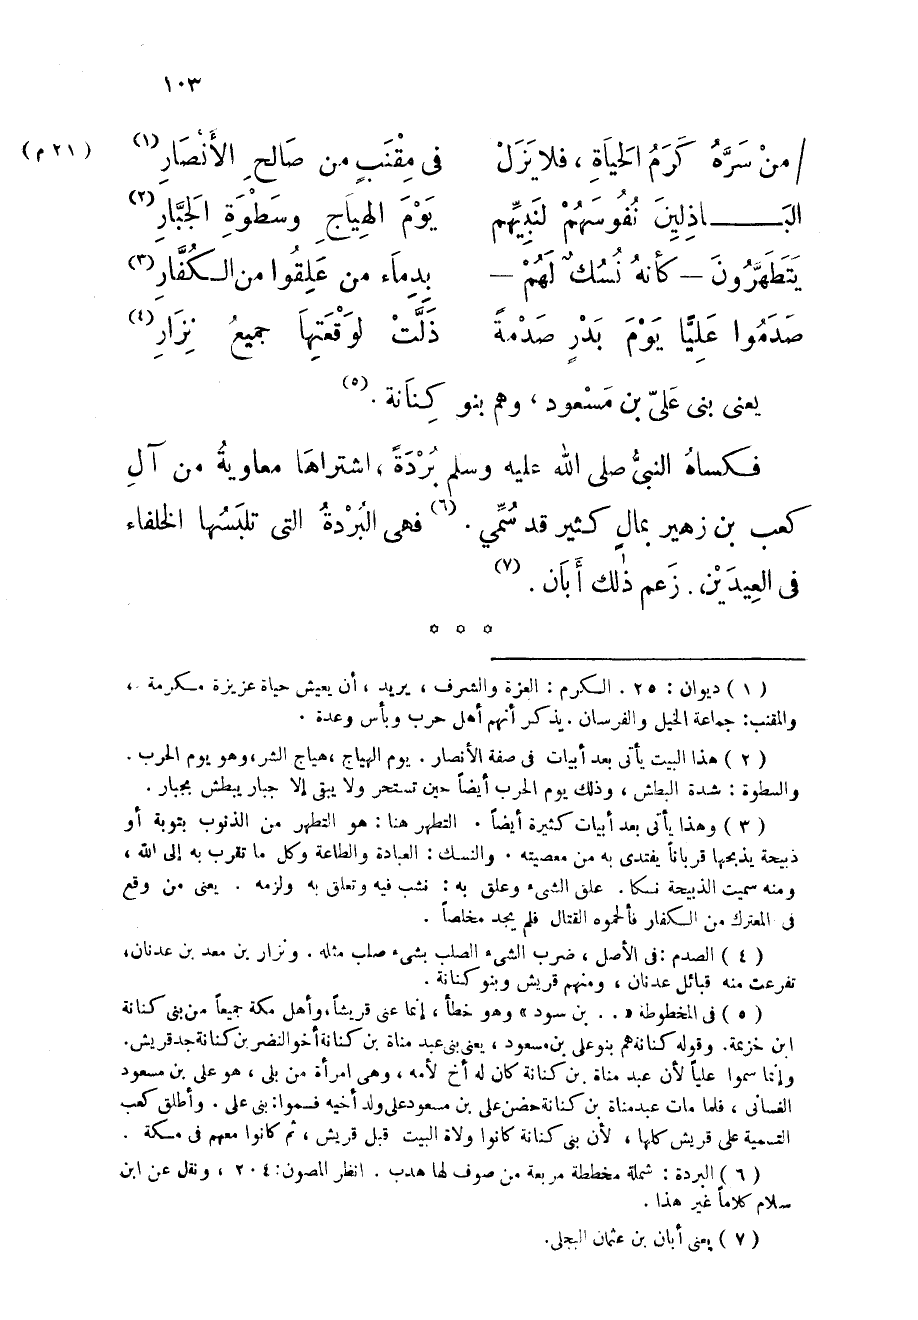 ١٠٣
/ مَنْ سَرَّهُ كَرَمُ الحَيَاةِ ، فلا يَزَلْ فى مِقْنَبٍ من صَالحِ الأَنْصَارِ (١) ( ٢١ م )
البَـــاذِلِينَ نُفُوسَهُمْ لنَبِيِّهم يَوْمَ الهِيَاجِ وسَطْوَةِ الجَبَّارِ (٢)
يَتَطَهَّرُونَ – كأنهُ نُسُكٌ لَهُمْ – بِدِمَاءِ من عَلِقُوا من الـكُفَّارِ (٣)
صَدَمُوا عَلِيًّا يَوْمَ بَدْرٍ صَدْمةً ذَلَّتْ لوَقْعَتِهاَ جميعُ نِزَارِ (٤)
يعنى بنى عَلىّ بن مَسْعود ، وهم بنو كِنَانة . (٥)
فـكساهُ النبىُّ صلى الله عليه وسلم بُرْدَةً ، اشتراهَا معاويةُ من آلِ
كعب بن زهير بمالٍ كثير قد سُمِّي . (٦) فهى البُرْدةُ التى تلبَسُها الخلفاء
فى العِيدَيْن . زَعم ذٰلك أَبَان . (٧)
* * *
( ١ ) ديوان : ٢٥ . الـكرم : العزة والشرف ، يريد ، أن يعيش حياة عزيزة مـكرمة ،
والمقنب : جماعة الخيل والفرسان . يذكر أنهم أهل حرب وبأس وعدة .
( ٢ ) هذا البيت يأتى بعد أبيات فى صفة الأنصار . يوم الهياج ، هياج الشر ، وهو يوم الحرب .
والسطوة : شدة البطش ، وذلك يوم الحرب أيضاً حين تستحر ولا يبقى إلا جبار يبطش بجبار .
( ٣ ) وهذا يأتى بعد أبيات كثيرة أيضاً . التطهر هنا : هو التطهر من الذنوب بتوبة أو
ذبيحة يذبحها قرباناً يفتدى به من معصيته . والنسك : العبادة والطاعة وكل ما تقرب به إلى الله ،
ومنه سميت الذبيحة نسكا . علق الشىء وعلق به : نشب فيه وتعلق به ولزمه . يعنى من وقع
فى المعترك من الـكفار فألحموه القتال فلم يجد مخلصاً .
( ٤ ) الصدم : فى الأصل ، ضرب الشىء الصلب بشىء صلب مثله . ونزار بن معد بن عدنان،
تفرعت منه قبائل عدنان ، ومنهم قريش وبنو كنانة .
( ٥ ) فى المخطوطة « . . بن سود » وهو خطأ ، إنما عنى قريشاً، وأهل مكة جميعاً من بنى كنانة
ابن خزيمة. وقوله كنانة هم بنو على بن مسعود ، يعنى بنى عبد مناة بن كنانة أخو النضر بن كنانة جد قريش.
وإنما سموا علياً لأن عبد مناة بن كنانة كان له أخ لأمه ، وهى امرأة من بلى ، هو على بن مسعود
الغسانى ، فلما مات عبد مناة بن كنانة حضن على بن مسعود على ولد أخيه فسموا : بنى على . وأطلق كعب
التسمية على قريش كلها ، لأن بنى كنانة كانوا ولاة البيت قبل قريش ، ثم كانوا معهم فى مـكة .
( ٦ ) البردة : شملة مخططة مربعة من صوف لها هدب . انظر المصون : ٢٠٤ ، ونقل عن ابن
سلام كلاماً غير هذا .
( ٧ ) يعنى أبان بن عثمان البجلى .